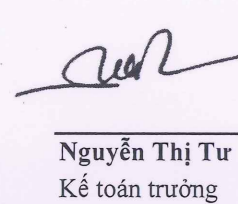 Nguyễn Thị Tư
Kế toán trưởng